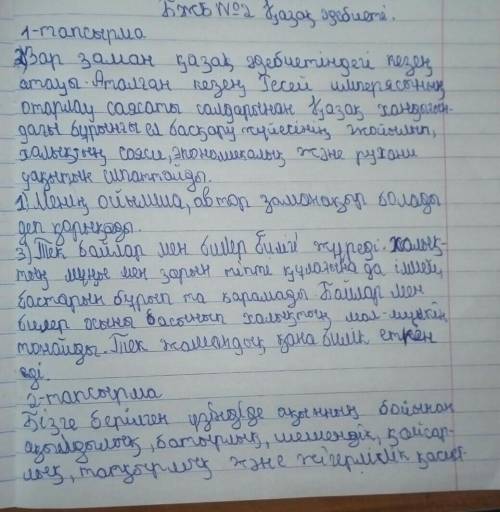 БЖБ №2 Қазақ әдебиеті.
1-тапсырма
2) Зар заман қазақ әдебиетіндегі кезең
атауы. Аталған кезең Ресей империясының
отарлау саясаты салдарынан Қазақ хандығын-
дағы бұрынғы ел басқару жүйесінің жойылып,
халықтың саяси, экономикалық және рухани
дағытын сипаттайды.
1) Менің ойымша, автор заманақыр болады
деп қорықады.
3) Тек байлар мен билер билігі жүреді. Халық-
тың мұңы мен зарын тіпті құлағына да ілмей,
бастарын бұрып та қарамады. Байлар мен
билер осыны басынып халықтың мал-мүлкін
тонайды. Тек жамандық қана билік еткен
еді.
2-тапсырма
Бізге берілген үзіндіде ақынның бойынан
ақылдылық, батырлық, шешендік, қайсар-
лық, тапқырлық және жігерлілік қасиет-